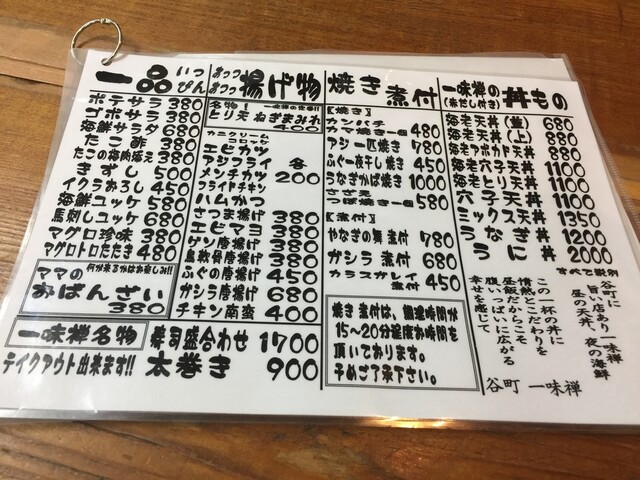 一品 いっぴん
ポテサラ 380
ゴボサラ 380
海鮮サラダ 680
たこ酢 380
たこの梅肉添え 380
きずし 500
イクラおろし 450
海鮮ユッケ 580
馬刺しユッケ 680
マグロ珍味 380
マグロトロたたき 480
ママの 何が来るかはお楽しみ!!
おばんざい
380
あつつ あつつ 揚げ物
名物! 一味禅の定番!!
とり天 ねぎまみれ
400
カニクリームコロッケ
エビカツ
アジフライ 各
メンチカツ 200
フライドチキン
ハムかつ
さつま揚げ 380
エビマヨ 380
ゲソ唐揚げ 380
鳥軟骨唐揚げ 380
ふぐの唐揚げ 450
ガシラ唐揚げ 680
チキン南蛮 400
一味禅名物 寿司盛合わせ 1700
テイクアウト出来ます!! 太巻き 900
焼き 煮付
【焼き】
カンパチ
カマ焼き一ヶ 480
アジ一匹焼き 780
ふぐ一夜干し焼き 450
うなぎかば焼き 1000
さざえ
つぼ焼き一ヶ 580
【煮付】
やなぎの舞 煮付 780
ガシラ 煮付 680
カラスガレイ
煮付 450
焼き 煮付は、調理時間が
15〜20分程度お時間を
頂いております。
予めご了承下さい。
一味禅の
(赤だし付き) 丼もの
海老天丼(並) 680
海老天丼(上) 880
海老アボカド天丼 880
海老穴子天丼 1100
海老とり天丼 1100
穴子天丼 1100
ミックス天丼 1350
うな丼 1200
うなぎ丼 2000
すべて税別
谷町に
旨い店あり一味禅
昼の天丼、夜の海鮮
この一杯の丼に
情熱とこだわりを
昼飯だからこそ
腹いっぱいに広がる
幸せを感じて
谷町 一味禅